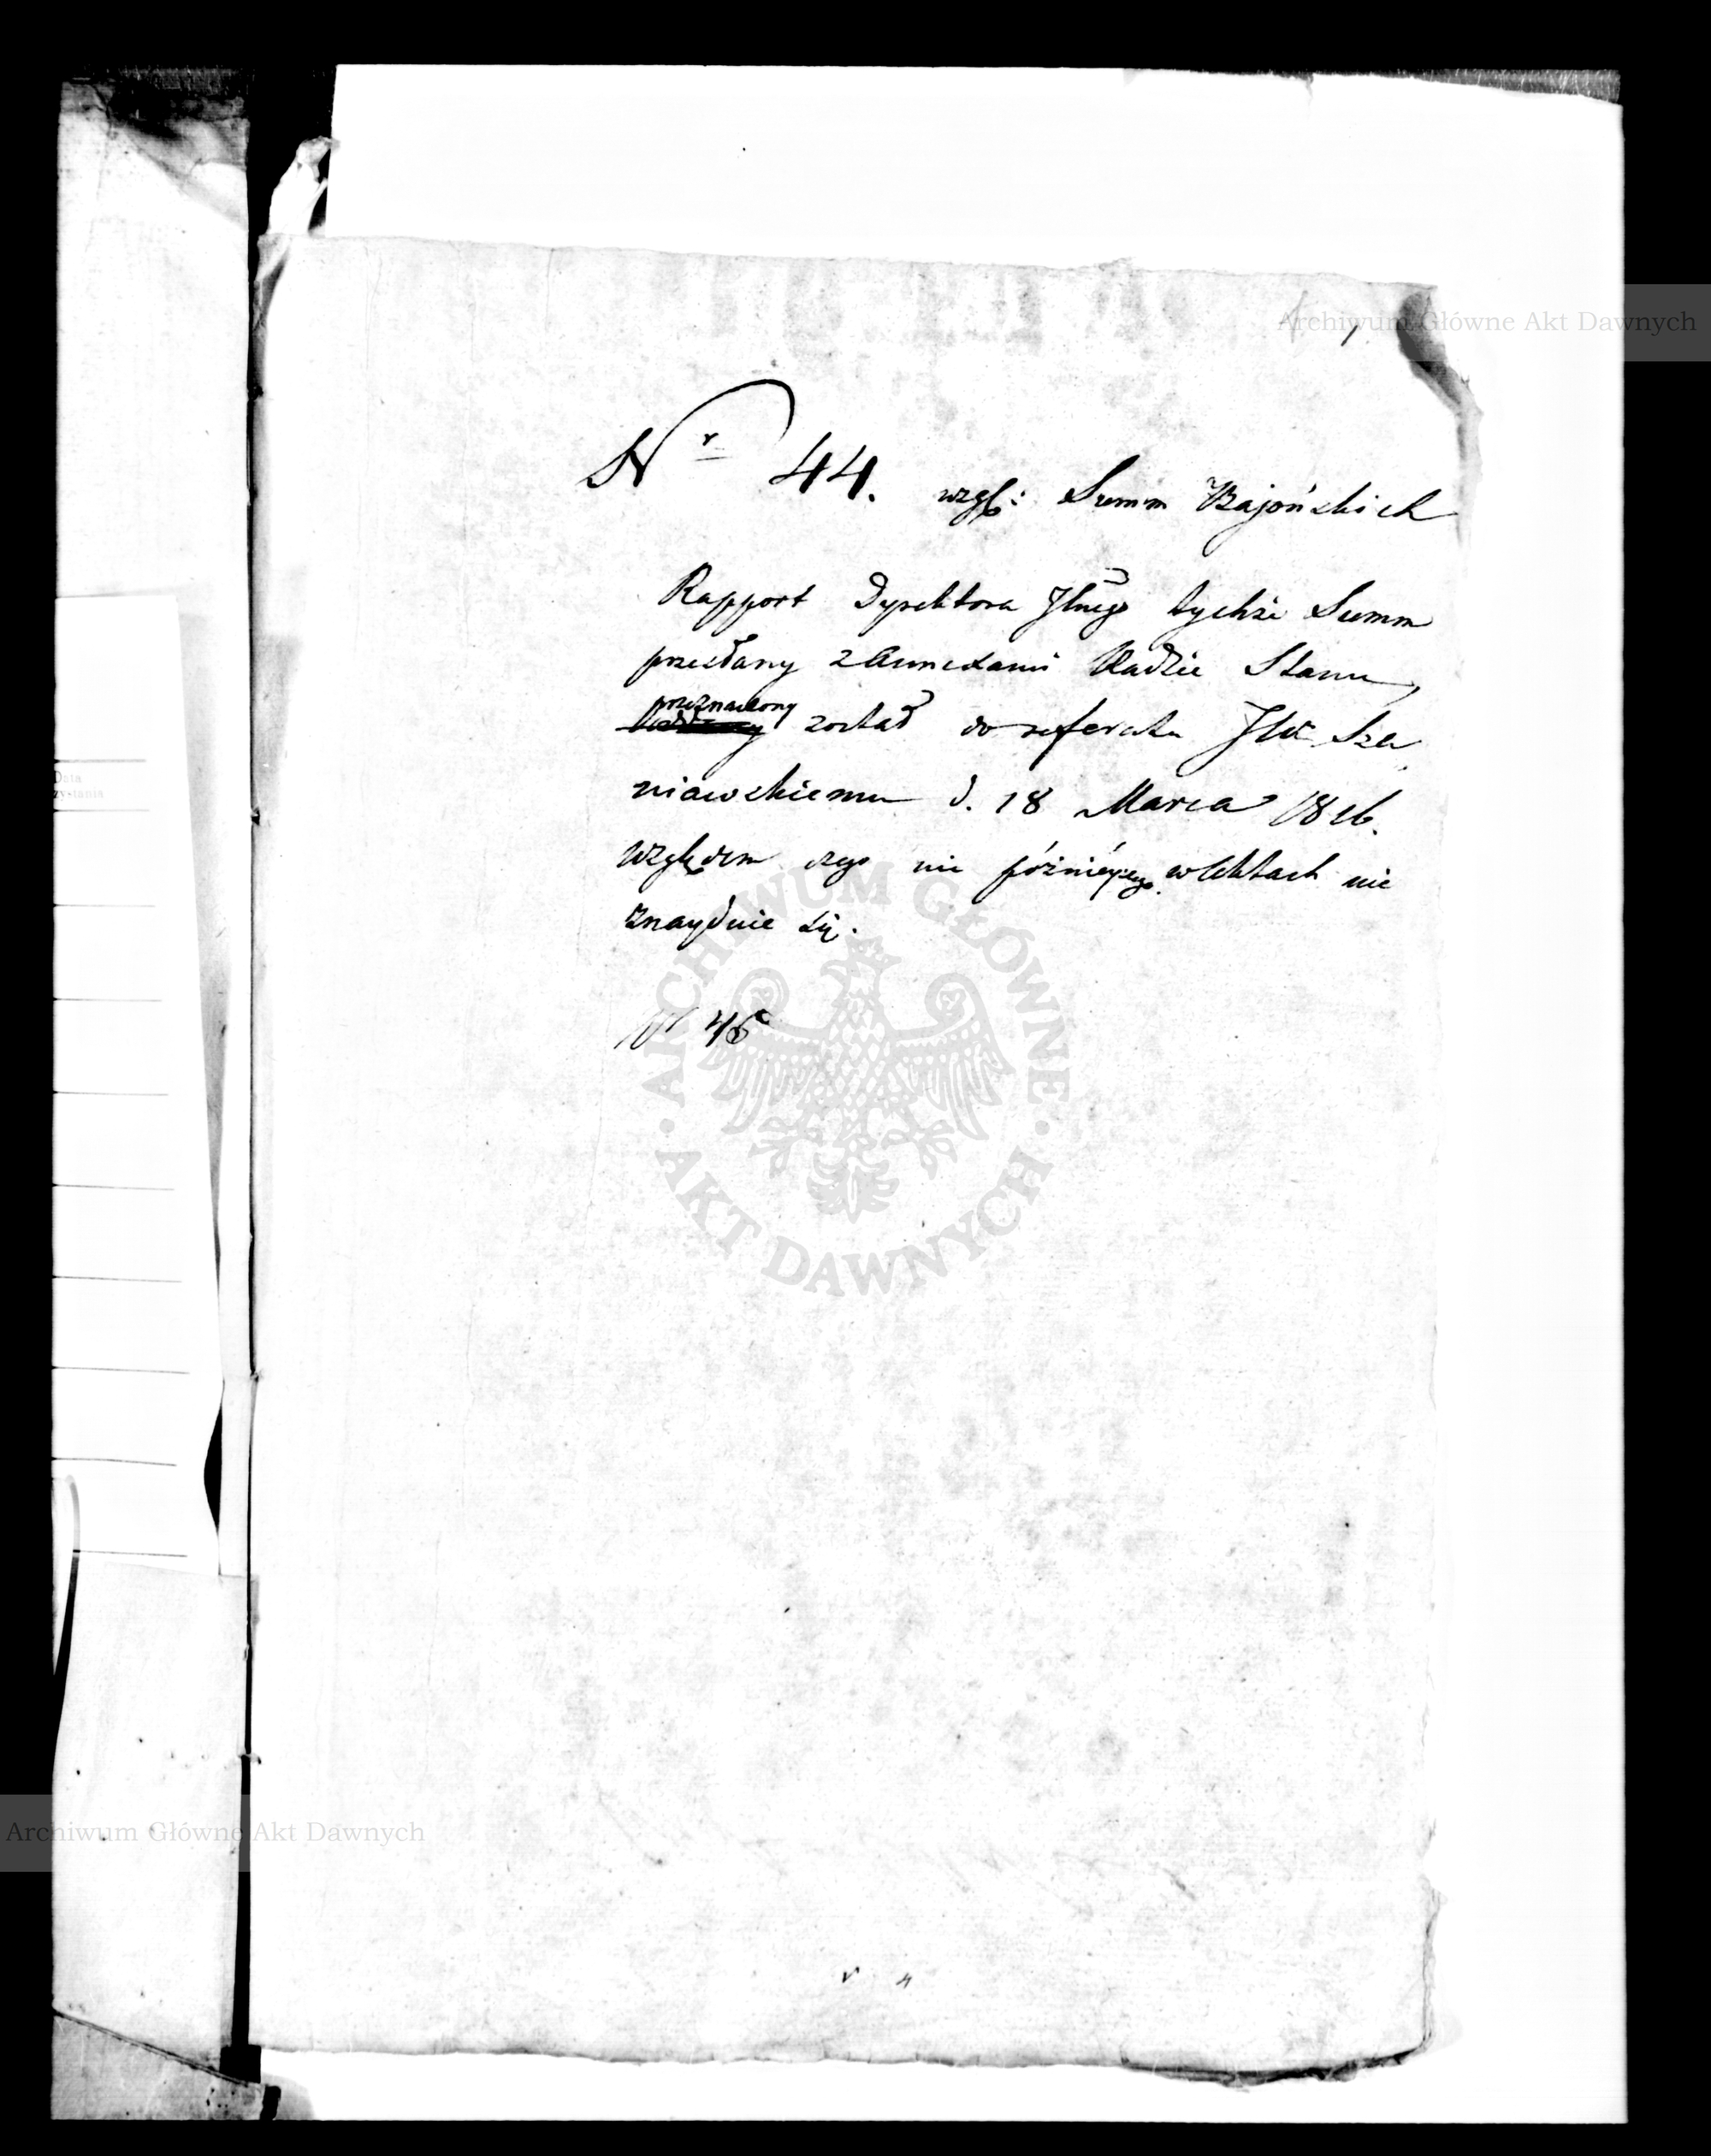 Archiwum Główne Akt Dawnych
1
Nr 44. wzgl: Summ Bajońskich
Rapport Dyrektora Jlnego tychże Summ
przesłany z Annexami Radzie Stanu,
przeznaczony
został do referatu JW Sza
niawskiemu d. 18 Marca 1816.
względem czego nic późniéyszego w Aktach nie
znayduie się.
Nr 46
ARCHIWUM GŁÓWNE AKT DAWNYCH
Data
Archiwum Główne Akt Dawnych